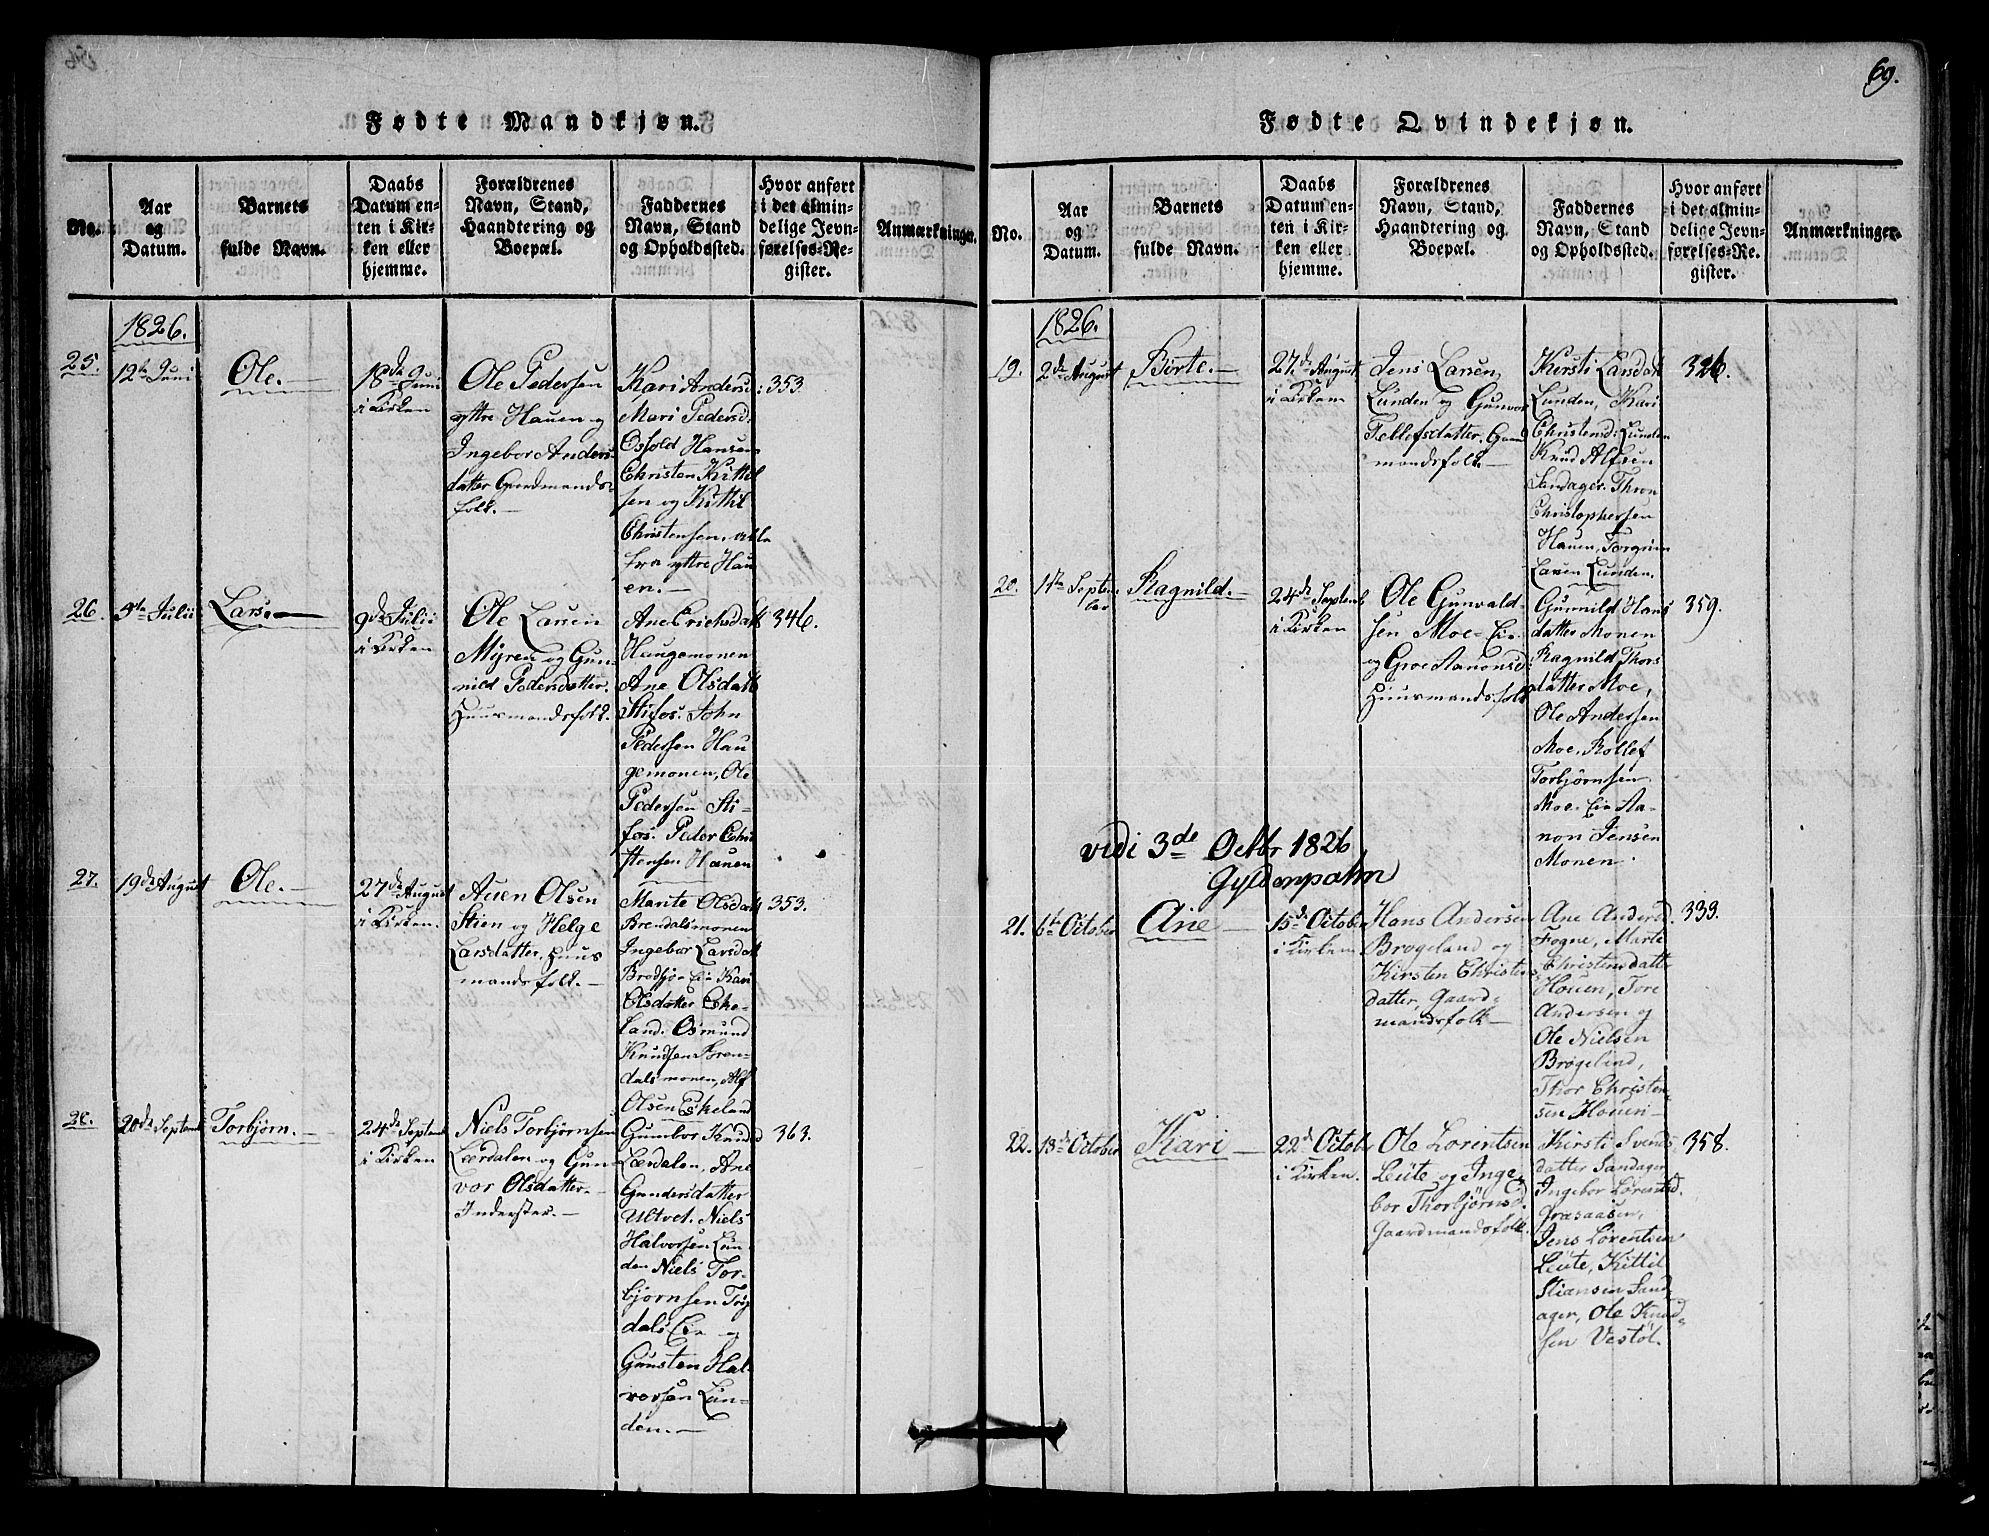 69.
Fødte Mandkjøn.
No.
Aar
og
Datum.
Barnets
fulde Navn.
Daabs
Datum en-
ten i Kir-
ken eller
hjemme.
Forældrenes
Navn, Stand,
Haandtering og
Boepæl.
Faddernes
Navn, Stand
og Opholdssted.
Hvor anført
i det almin-
delige Jevn-
førelses-Re-
gister.
Anmærkninger.
1826.
25.
12te Juni
Ole.
18de Juni
i Kirken
Ole Pedersen
yttre Hauen og
Ingebor Anders
datter Gaardmands-
folk.
Kari Andersd:
Mari Pedersd:
Osfold Hansen
Christen Kittil
sen og Kittil
Christensen, alle
fra yttre Hau
en.
353.
26.
Julii
Lars.
9de Julii
i Kirken
Ole Larsen
Myren og Gun-
nild Pedersdatter.
Huusmandsfolk.
Ane Erichsdatt
Haugemonen
Ane Olsdatt
Stifos. John
Pedersen Hau
gemonen, Ole
Pedersen Sti-
fos. Peder Chri
stensen Hauen
346.
27.
19de August
Ole.
27de August
i Kirken.
Auen Olsen
Stien og Helge
Larsdatter. Huus
mandsfolk.
Marite Olsdatt
Brendalsmonen
Ingebor Larsdatt
Kari
Olsdatter Eske-
land. Osmund
Knudsen Bren-
dalsmonen, Alf
Olsen Eskeland
353.
28.
20de Septemb
Torbjørn.
24de Septemb
i Kirken
Niels Torbjørnsen
Lærdalen og Gun-
vor Olsdatter.
Inderster.
Gunbor Knudsd
Lærdalen, Ane
Gundersdatter
Ultvet. Niels
Halvorsen Lun-
den Niels Tor-
bjørnsen
dals Eie og
Gunsten Hal-
vorsen Lun-
den.
363.
Fødte Qvindekjøn.
No.
Aar
og
Datum.
Barnets
fulde Navn.
Daabs
Datum en-
ten i Kir-
ken eller
hjemme.
Forældrenes
Navn, Stand,
Haandtering og
Boepæl.
Faddernes
Navn, Stand
og Opholdssted.
Hvor anført
i det almin-
delige Jevn-
førelses-Re-
gister.
Anmærkninger.
1826.
19.
2de August
Birte.
27de August
i Kirken
Jens Larsen
Lunden og Gunvor
Tellefsdatter. Gaard
mandsfolk.
Kirsti Larsdatt
Lunden, Kari
Christensd: Lunden
Knud Alfsen
Sandager. Thron
Christophersen
Hauen, Torgrim
Larsen Lunden.
326.
20.
1ste Septem-
ber
Ragnild.
24de Septemb
i Kirken
Ole Gunvald-
sen Moe-Eie
og Groe Aanonsd:
Huusmandsfolk
Gunnild Hans
datter Monen
Ragnild Thors
datter Moe,
Ole Andersen
Moe, Rollef
Torbjørnsen
Moe-Eie Aa-
non Jensen
Monen.
359.
vidi 3de Octbr 1826
Gyldenpalm
21.
6te October
Ane
15de October
i Kirken
Hans Andersen
Brøgeland og
Kirsten Christens
datter, Gaard-
mandsfolk
Ane Andersd.
Fogne, Marte
Christensdatter
Houen, Tore
Andersen og
Ole Nielsen
Brøgelind,
Thor Christen-
sen Houen
333.
22.
13de October
Kari
22de October
i Kirken.
Ole Lorentsen
Leute og Inge-
bor Thorbjørnsd.
Gaardmandsfolk.
Kirsti Svends
datter Sandager
Ingebor Lorentsd.
Græsaasen,
Jens Lorentsen
Leute, Kittil
Stiansen Sand-
ager, Ole Knud-
sen Vestøl.
358.